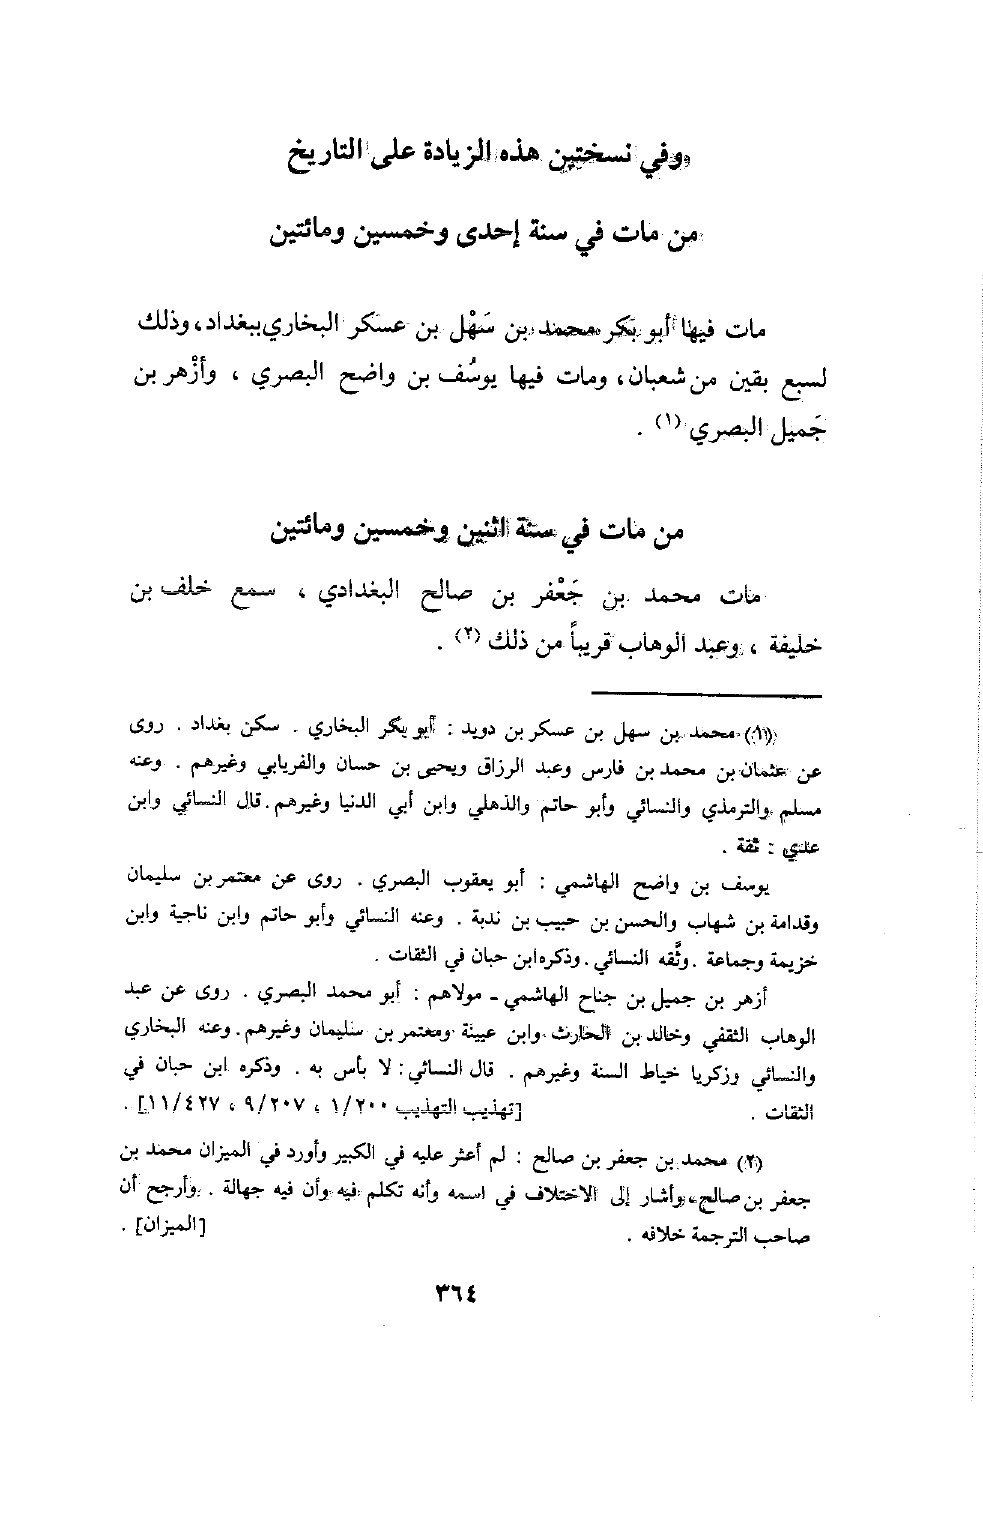 وفي نسختين هذه الزيادة على التاريخ
من مات في سنة إحدى وخمسين ومائتين
مات فيها أبو بكر محمد بن سَهْل بن عسكر البخاري ببغداد، وذلك
لسبع بقين من شعبان، ومات فيها يوسُف بن واضح البصري ، وأزْهر بن
جَميل البصري (١) .
من مات في سنة اثنين وخمسين ومائتين
مات محمد بن جَعْفر بن صالح البغدادي ، سمع خلف بن
خليفة ، وعبد الوهاب قريباً من ذلك (٢) .
(١) محمد بن سهل بن عسكر بن دويد : أبو بكر البخاري . سكن بغداد . روى
عن عثمان بن محمد بن فارس وعبد الرزاق ويحيى بن حسان والفريابي وغيرهم . وعنه
مسلم والترمذي والنسائي وأبو حاتم والذهلي وابن أبي الدنيا وغيرهم . قال النسائي وابن
عدي : ثقة .
يوسف بن واضح الهاشمي : أبو يعقوب البصري . روى عن معتمر بن سليمان
وقدامة بن شهاب والحسن بن حبيب بن ندبة . وعنه النسائي وأبو حاتم وابن ناجية وابن
خزيمة وجماعة . وثَّقه النسائي . وذكره ابن حبان في الثقات .
أزهر بن جميل بن جناح الهاشمي - مولاهم : أبو محمد البصري . روى عن عبد
الوهاب الثقفي وخالد بن الحارث وابن عيينة ومعتمر بن سليمان وغيرهم . وعنه البخاري
والنسائي وزكريا خياط السنة وغيرهم . قال النسائي : لا بأس به . وذكره ابن حبان في
الثقات . [تهذيب التهذيب ١/٢٠٠ ، ٩/٢٠٧ ، ١١/٤٢٧] .
(٢) محمد بن جعفر بن صالح : لم أعثر عليه في الكبير وأورد في الميزان محمد بن
جعفر بن صالح، وأشار إلى الاختلاف في اسمه وأنه تكلم فيه وأن فيه جهالة . وأرجح أن
صاحب الترجمة خلافه . [الميزان] .
٣٦٤